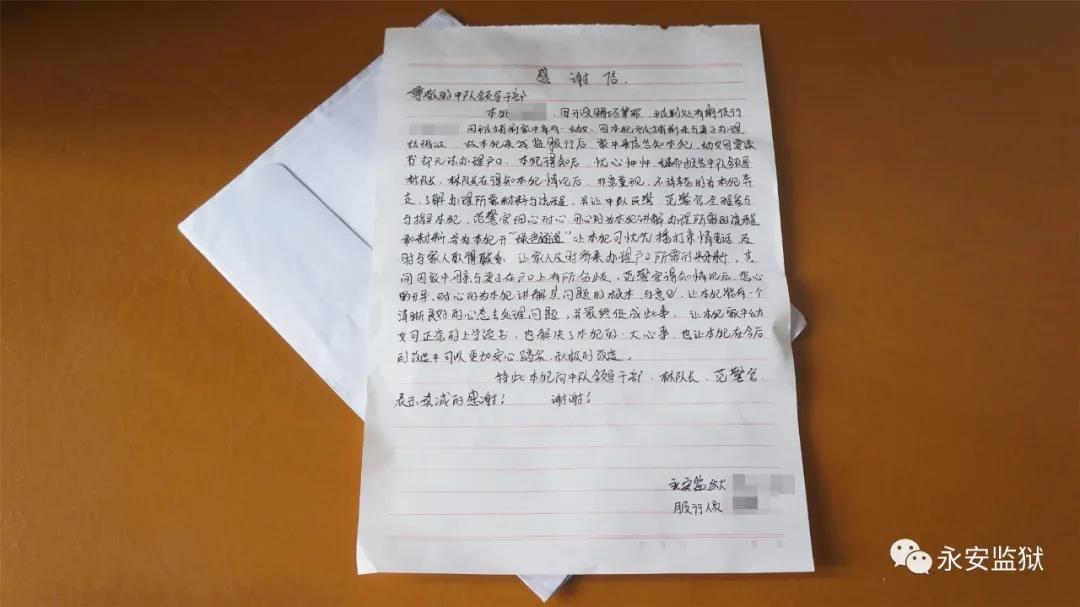 感谢信.
尊敬的中队领导干部
本犯 因开设赌场等罪 被判处有期徒刑
因被捕前家中育有一幼女，因本犯被捕前未与妻子办理
结婚证 故本犯来我监服行后 家中来信告知本犯，幼女因要读
书却无法办理户口，本犯得知后，忧心忡忡，报告中队领导
林队长，林队长在得知本犯情况后，非常重视，不辞辛劳的为本犯奔
走，了解办理所需材料与流程，并让中队民警，范警官全程参与
与指导本犯，范警官细心耐心 用心的为本犯讲解办理所需的流程
和材料 并为本犯开“绿色通道”让本犯可优先播打亲情电话 及
时与家人取得联系 让家人及时寄来办理户口所需的材料，其
间因家中母亲与妻子在户口上有所分歧，范警官得知情况后，悉心
的开导，耐心的为本犯讲解其问题的根本 与意见，让本犯能有一个
清晰良好的心态去处理问题，并最终促成此事，让本犯家中幼
女可正常的上学读书，也解决了本犯的一大心事，也让本犯在今后
的改造中可以更加安心踏实，积极的改造。
特此本犯向中队领导干部，林队长，范警官，
表示真诚的感谢！ 谢谢！
永安监狱
服行人员
永安监狱